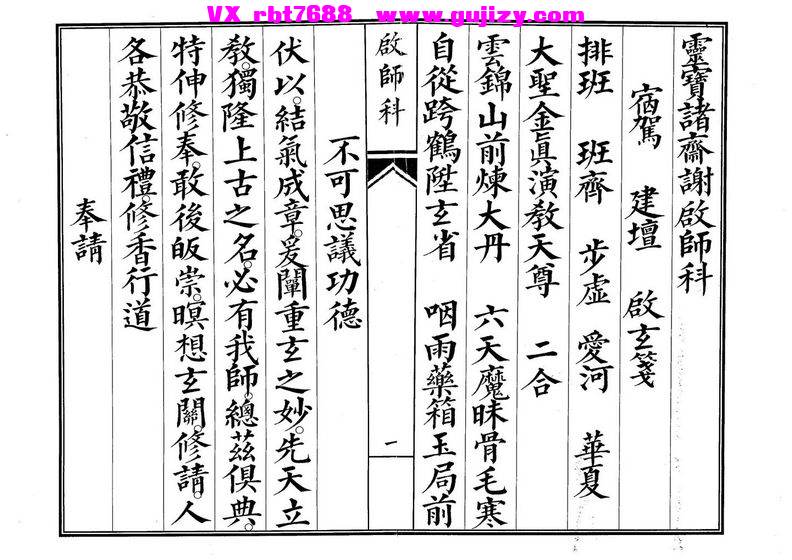 VX rbt7688 www.gujizy.com
靈寶諸齋謝啟師科
宿駕 建壇 啟玄箋
排班 班齊 步虛 愛河 華夏
大聖金真演教天尊 二合
雲錦山前煉大丹 六天魔昧骨毛寒
自從跨鶴陞玄省 咽雨藥箱玉局前
啟師科
一
不可思議功德
伏以。結氣成章。爰闡重玄之妙。先天立
教。獨隆上古之名。必有我師。總茲俱典。
特伸修奉。敢後皈崇。暝想玄關。修請。人
各恭敬信禮。修香行道
奉請